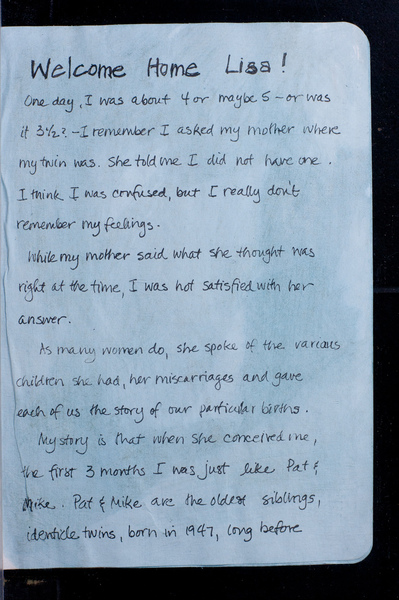 Welcome Home Lisa!
One day, I was about 4 or maybe 5 - or was
it 3½? - I remember I asked my mother where
my twin was. She told me I did not have one.
I think I was confused, but I really don't
remember my feelings.
While my mother said what she thought was
right at the time, I was not satisfied with her
answer.
As many women do, she spoke of the various
children she had, her miscarriages and gave
each of us the story of our particular births.
My story is that when she conceived me,
the first 3 months I was just like Pat &
Mike. Pat & Mike are the oldest siblings,
identicle twins, born in 1947, long before